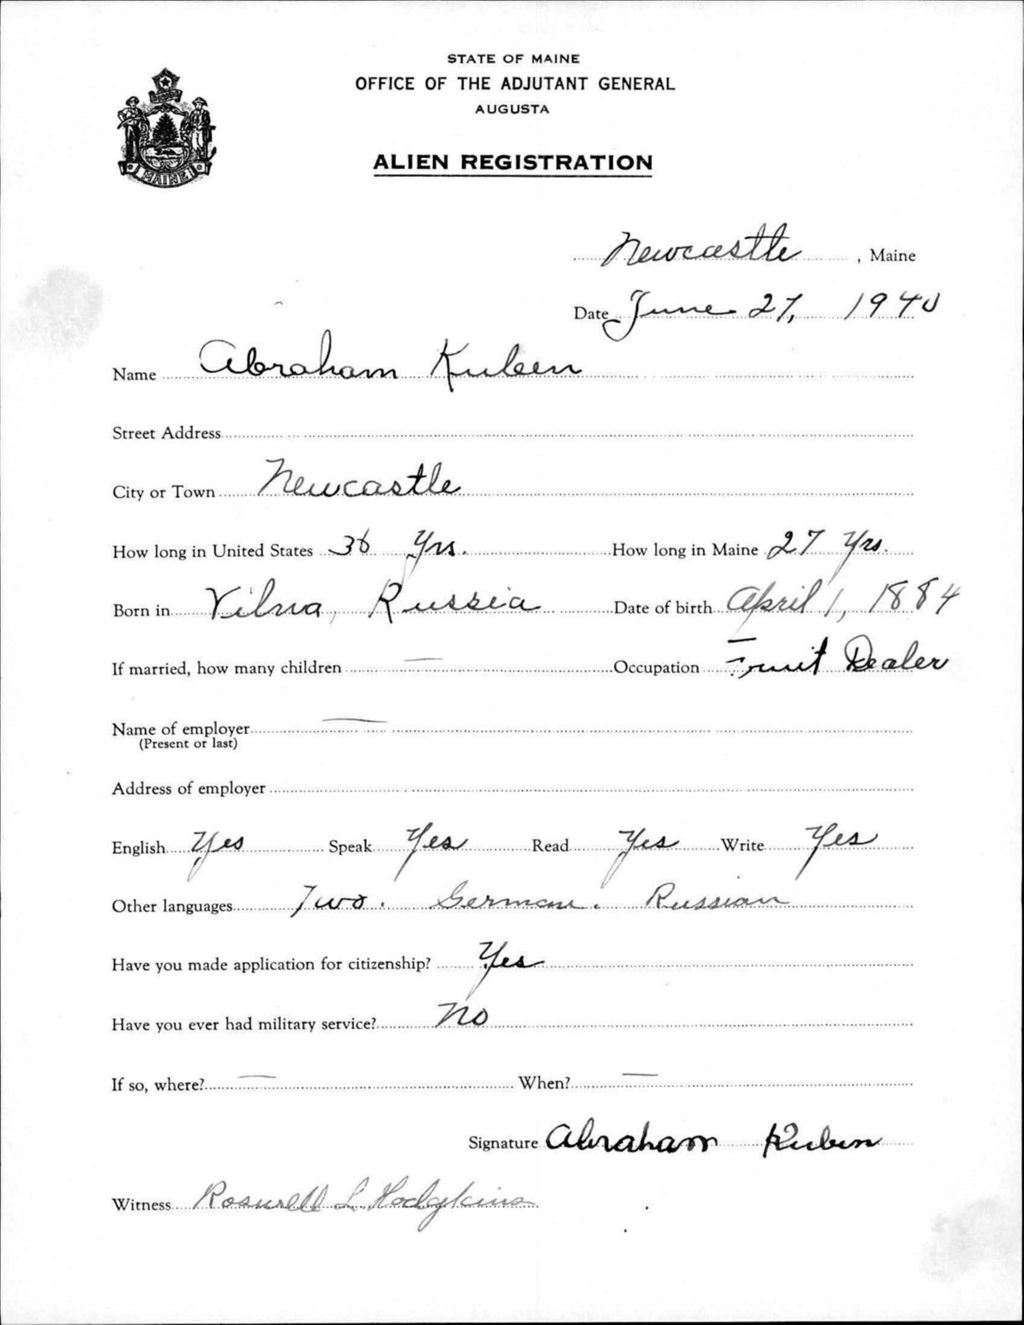 STATE OF MAINE
OFFICE OF THE ADJUTANT GENERAL
AUGUSTA
ALIEN REGISTRATION
MAINE
Newcastle, Maine
Date June 27, 1940
Name Abraham Kuben
Street Address
City or Town Newcastle
How long in United States 36 Yrs. How long in Maine 27 Yrs.
Born in Vilna, Russia Date of birth April 1, 1884
If married, how many children — Occupation Fruit Dealer
Name of employer —
(Present or last)
Address of employer
English Yes Speak Yes Read Yes Write Yes
Other languages Two. German. Russian
Have you made application for citizenship? Yes
Have you ever had military service? No
If so, where? — When? —
Signature Abraham Kuben
Witness Roswell L. Hodgkins